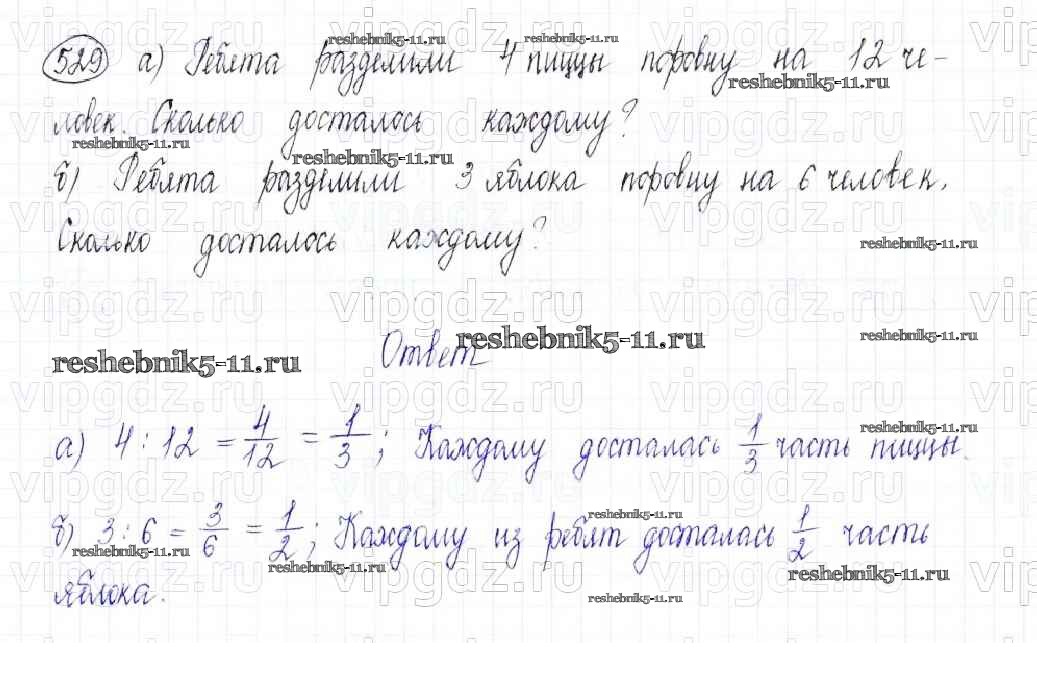 529 а) Ребята разделили 4 пиццы поровну на 12 че-
ловек. Сколько досталось каждому?
б) Ребята разделили 3 яблока поровну на 6 человек.
Сколько досталось каждому?
Ответ
а) 4 : 12 = 4/12 = 1/3 ; Каждому досталась 1/3 часть пиццы.
б) 3 : 6 = 3/6 = 1/2 ; Каждому из ребят досталась 1/2 часть
яблока.
reshebnik5-11.ru
vipgdz.ru